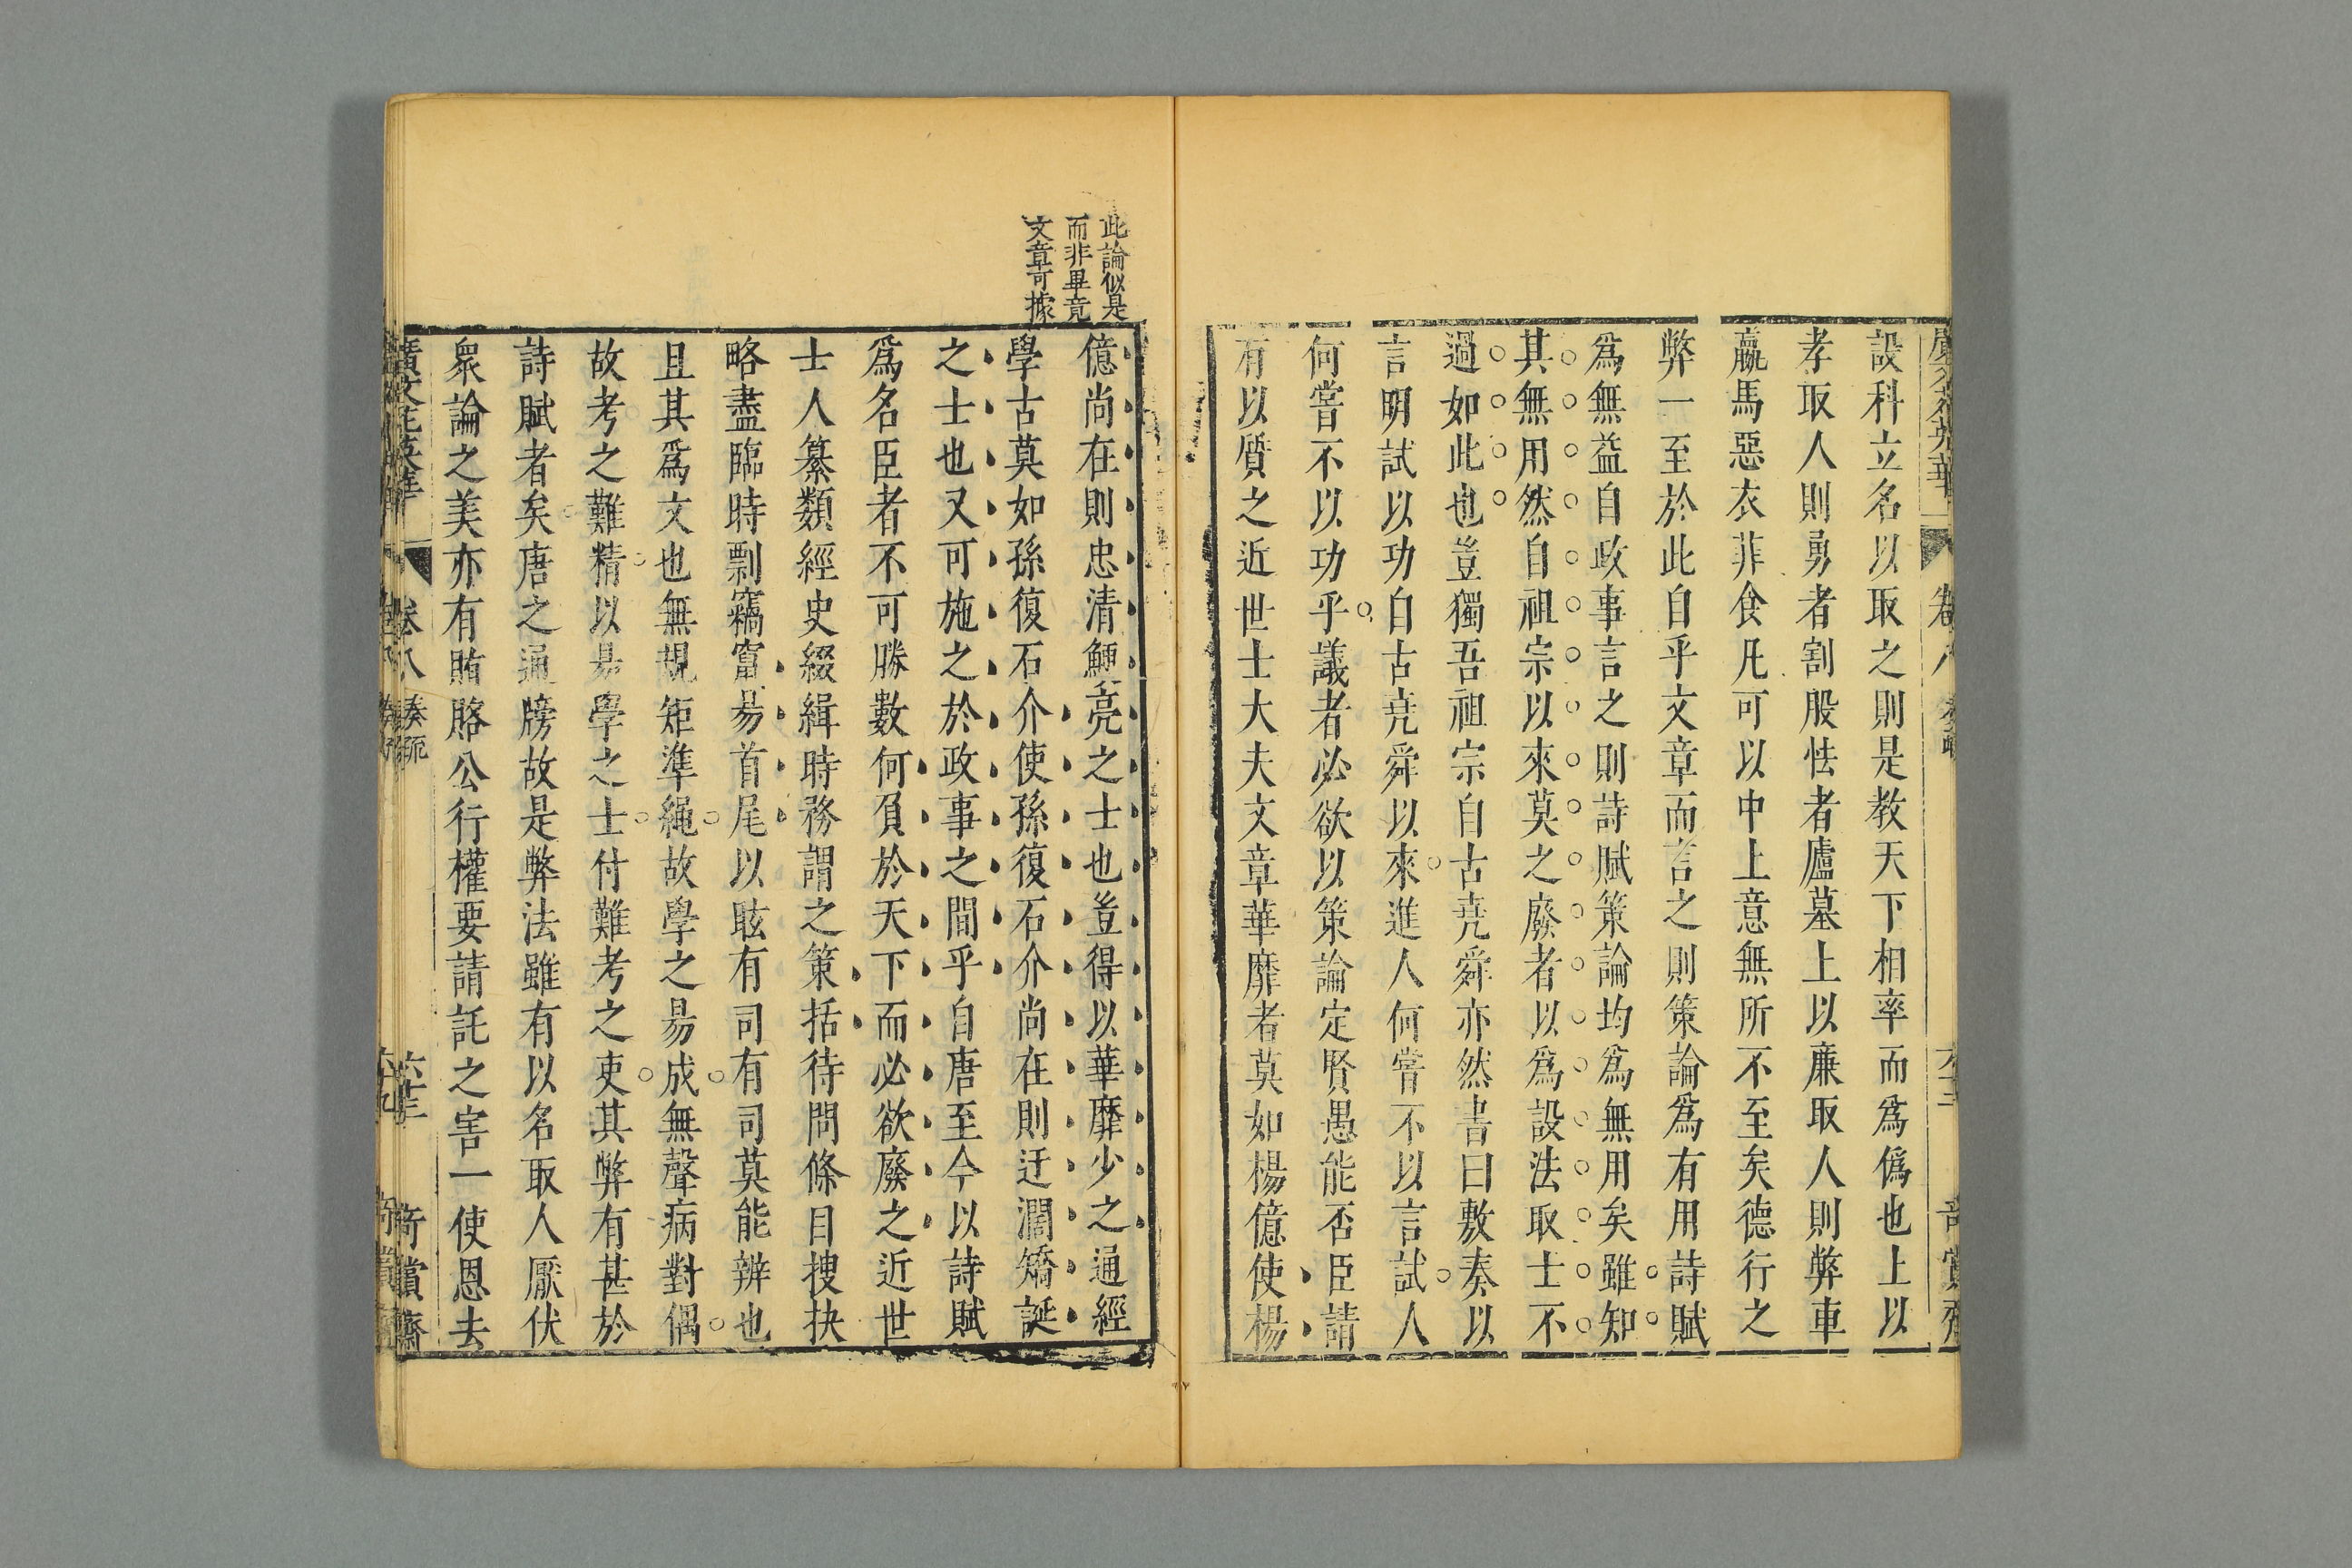 設科立名以取之則是教天下相率而爲僞也上以
孝取人則勇者割股怯者廬墓上以廉取人則弊車
羸馬惡衣菲食凡可以中上意無所不至矣德行之
弊一至於此自乎文章而言之則策論爲有用詩賦
爲無益自政事言之則詩賦策論均爲無用矣雖知
其無用然自祖宗以來莫之廢者以爲設法取士不
過如此也豈獨吾祖宗自古堯舜亦然書曰敷奏以
言明試以功自古堯舜以來進人何嘗不以言試人
何嘗不以功乎議者必欲以策論定賢愚能否臣請
有以質之近世士大夫文章華靡者莫如楊億使楊
此論似是
而非畢竟
文章可據
億尚在則忠清鯁亮之士也豈得以華靡少之通經
學古莫如孫復石介使孫復石介尚在則迂濶矯誕
之士也又可施之於政事之間乎自唐至今以詩賦
爲名臣者不可勝數何負於天下而必欲廢之近世
士人纂類經史綴緝時務謂之策括待問條目搜抉
略盡臨時剽竊竄易首尾以眩有司有司莫能辨也
且其爲文也無規矩準繩故學之易成無聲病對偶
故考之難精以易學之士付難考之吏其弊有甚於
詩賦者矣唐之通牓故是弊法雖有以名取人厭伏
衆論之美亦有賄賂公行權要請託之害一使恩去
廣文苑英華 卷八 奏疏 六十三 奇賞齋